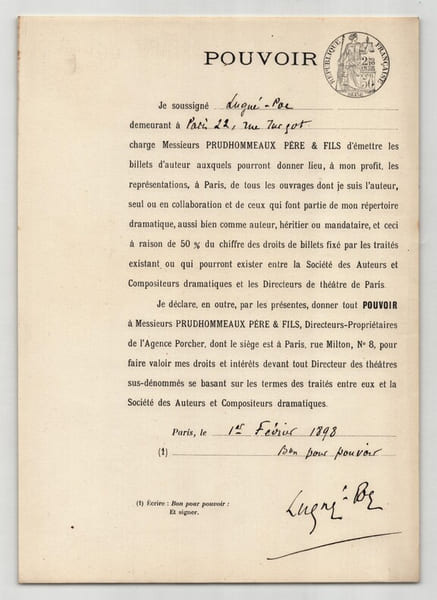 POUVOIR
RÉPUBLIQUE FRANÇAISE
Je soussigné Lugné-Poe
demeurant à Paris 22, rue Turgot
charge Messieurs PRUDHOMMEAUX PÈRE & FILS d'émettre les
billets d'auteur auxquels pourront donner lieu, à mon profit, les
représentations, à Paris, de tous les ouvrages dont je suis l'auteur,
seul ou en collaboration et de ceux qui font partie de mon répertoire
dramatique, aussi bien comme auteur, héritier ou mandataire, et ceci
à raison de 50 % du chiffre des droits de billets fixé par les traités
existant ou qui pourront exister entre la Société des Auteurs et
Compositeurs dramatiques et les Directeurs de théâtre de Paris.
Je déclare, en outre, par les présentes, donner tout POUVOIR
à Messieurs PRUDHOMMEAUX PÈRE & FILS, Directeurs-Propriétaires
de l'Agence Porcher, dont le siège est à Paris, rue Milton, N° 8, pour
faire valoir mes droits et intérêts devant tout Directeur des théâtres
sus-dénommés se basant sur les termes des traités entre eux et la
Société des Auteurs et Compositeurs dramatiques.
Paris, le 1er Février 1898
(1) Bon pour pouvoir
Lugné-Poe
(1) Écrire : Bon pour pouvoir :
Et signer.